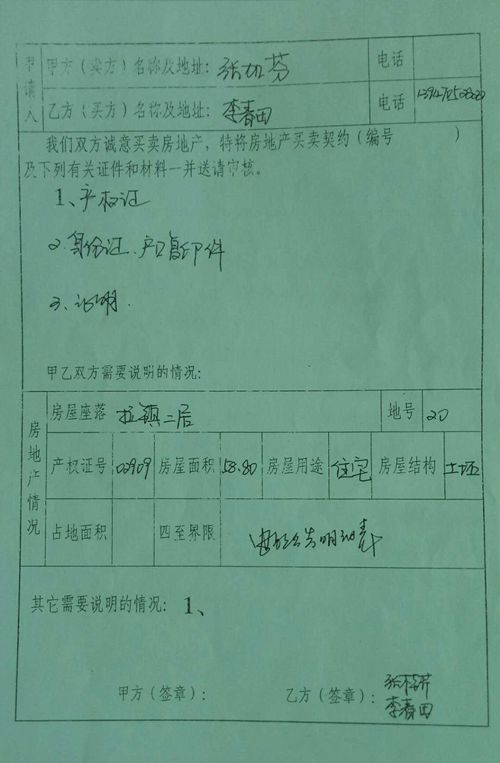 申请人
甲方（卖方）名称及地址：张 芬 电话
乙方（买方）名称及地址：李春田 电话
我们双方诚意买卖房地产，特将房地产买卖契约（编号 ）
及下列有关证件和材料一并送请审核。
1、产权证
2、身份证、户口复印件
3、证明.
甲乙双方需要说明的情况：
房地产情况
房屋座落 拉镇二居 地号 20
产权证号 02909 房屋面积 58.80 房屋用途 住宅 房屋结构 土坯
占地面积 四至界限
其它需要说明的情况：1、
甲方（签章）： 乙方（签章）：
李春田